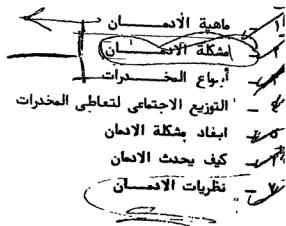 ١ - ماهية الادمــــان
٢ - مشكلة الادمــــان
٣ - أنواع المخــــدرات
٤ - التوزيع الاجتماعى لتعاطى المخدرات
٥ - ابعاد مشكلة الادمان
٦ - كيف يحدث الادمان
٧ - نظريات الادمــــان